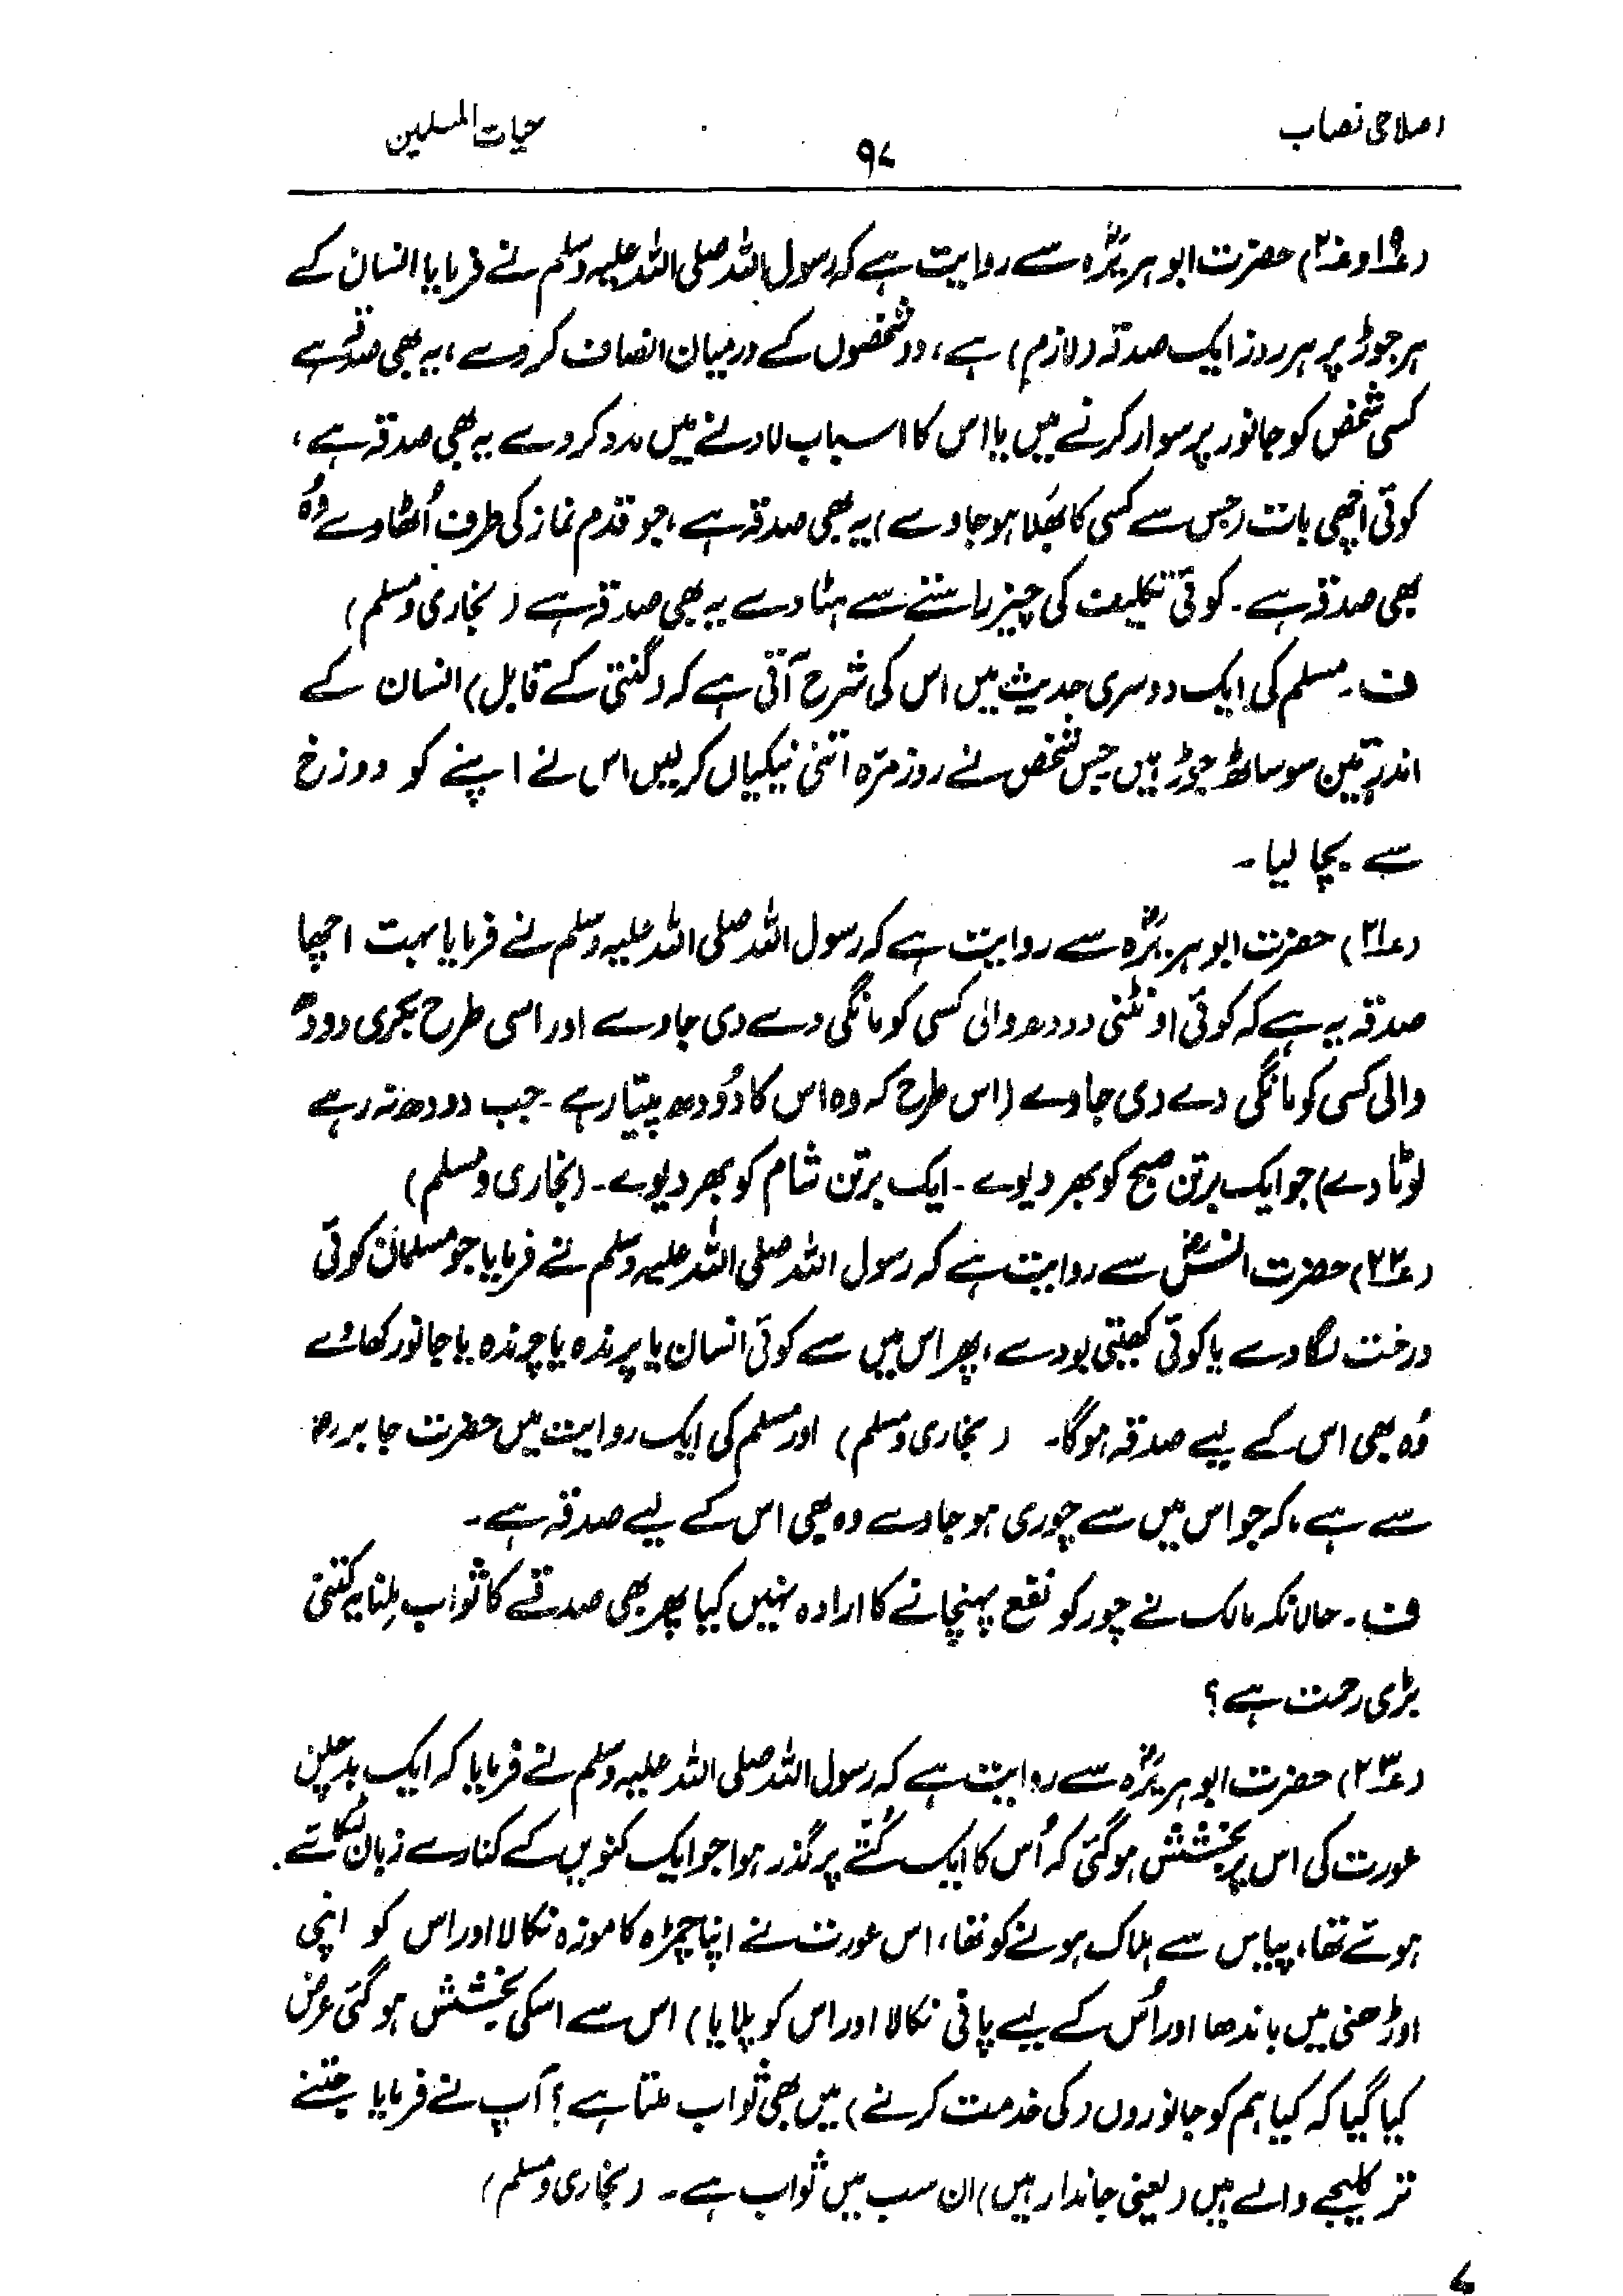 اصلاحی نصاب
۹۷
حیات المسلمین
(ع۱۹ و ع۲۰) حضرت ابو ہریرہؓ سے روایت ہے کہ رسول اللہ صلی اللہ علیہ وسلم نے فرمایا انسان کے
ہر جوڑ پر ہر روز ایک صدقہ (لازم) ہے، دو شخصوں کے درمیان انصاف کر دے، یہ بھی صدقہ ہے
کسی شخص کو جانور پر سوار کرنے میں یا اس کا اسباب لادنے میں مدد کر دے یہ بھی صدقہ ہے،
کوئی اچھی بات (جس سے کسی کا بَھلا ہو جاوے) یہ بھی صدقہ ہے، جو قدم نماز کی طرف اُٹھاوے وُہ
بھی صدقہ ہے۔ کوئی تکلیف کی چیز راستے سے ہٹا دے یہ بھی صدقہ ہے (بخاری و مسلم)
ف۔ مسلم کی ایک دوسری حدیث میں اس کی شرح آئی ہے کہ (گنتی کے قابل) انسان کے
اندر تین سو ساٹھ جوڑ ہیں جس شخص نے روز مرّہ اتنی نیکیاں کر لیں اس نے اپنے کو دوزخ
سے بچا لیا۔
(ع۲۱) حضرت ابو ہریرہؓ سے روایت ہے کہ رسول اللہ صلی اللہ علیہ وسلم نے فرمایا بہت اچھا
صدقہ یہ ہے کہ کوئی اونٹنی دودھ والی کسی کو مانگی دے دی جاوے اور اسی طرح بکری دودھ
والی کسی کو مانگی دے دی جاوے (اس طرح کہ وہ اس کا دُودھ پیتا رہے۔ جب دودھ نہ رہے
لوٹا دے) جو ایک برتن صبح کو بھر دیوے۔ ایک برتن شام کو بھر دیوے۔ (بخاری و مسلم)
(ع۲۲) حضرت انسؓ سے روایت ہے کہ رسول اللہ صلی اللہ علیہ وسلم نے فرمایا جو مسلمان کوئی
درخت لگا دے یا کوئی کھیتی بودے، پھر اس میں سے کوئی انسان یا پرندہ یا چرندہ یا جانور کھائے
وُہ بھی اس کے لیے صدقہ ہوگا۔ (بخاری و مسلم) اور مسلم کی ایک روایت میں حضرت جابر رضؓ
سے ہے، کہ جو اس میں سے چوری ہو جاوے وہ بھی اس کے لیے صدقہ ہے۔
ف۔ حالانکہ مالک نے چور کو نفع پہنچانے کا ارادہ نہیں کیا پھر بھی صدقے کا ثواب مِلنا یہ کتنی
بڑی رحمت ہے؟
(ع۲۳) حضرت ابو ہریرہؓ سے روایت ہے کہ رسول اللہ صلی اللہ علیہ وسلم نے فرمایا کہ ایک بدچلن
عورت کی اس پر بخشش ہو گئی کہ اُس کا ایک کُتّے پر گذر ہوا جو ایک کنویں کے کنارے زبان لٹکائے
ہوئے تھا، پیاس سے ہلاک ہونے کو تھا، اس عورت نے اپنا چمڑہ کا موزہ نکالا اور اس کو اپنی
اوڑھنی میں باندھا اور اُس کے لیے پانی نکالا اور اس کو پلایا) اس سے اسکی بخشش ہو گئی عرض
کیا گیا کہ کیا ہم کو جانوروں (کی خدمت کرنے) میں بھی ثواب ملتا ہے؟ آپ نے فرمایا جتنے
تر کلیجے والے ہیں (یعنی جاندار ہیں) ان سب میں ثواب ہے۔ (بخاری و مسلم)